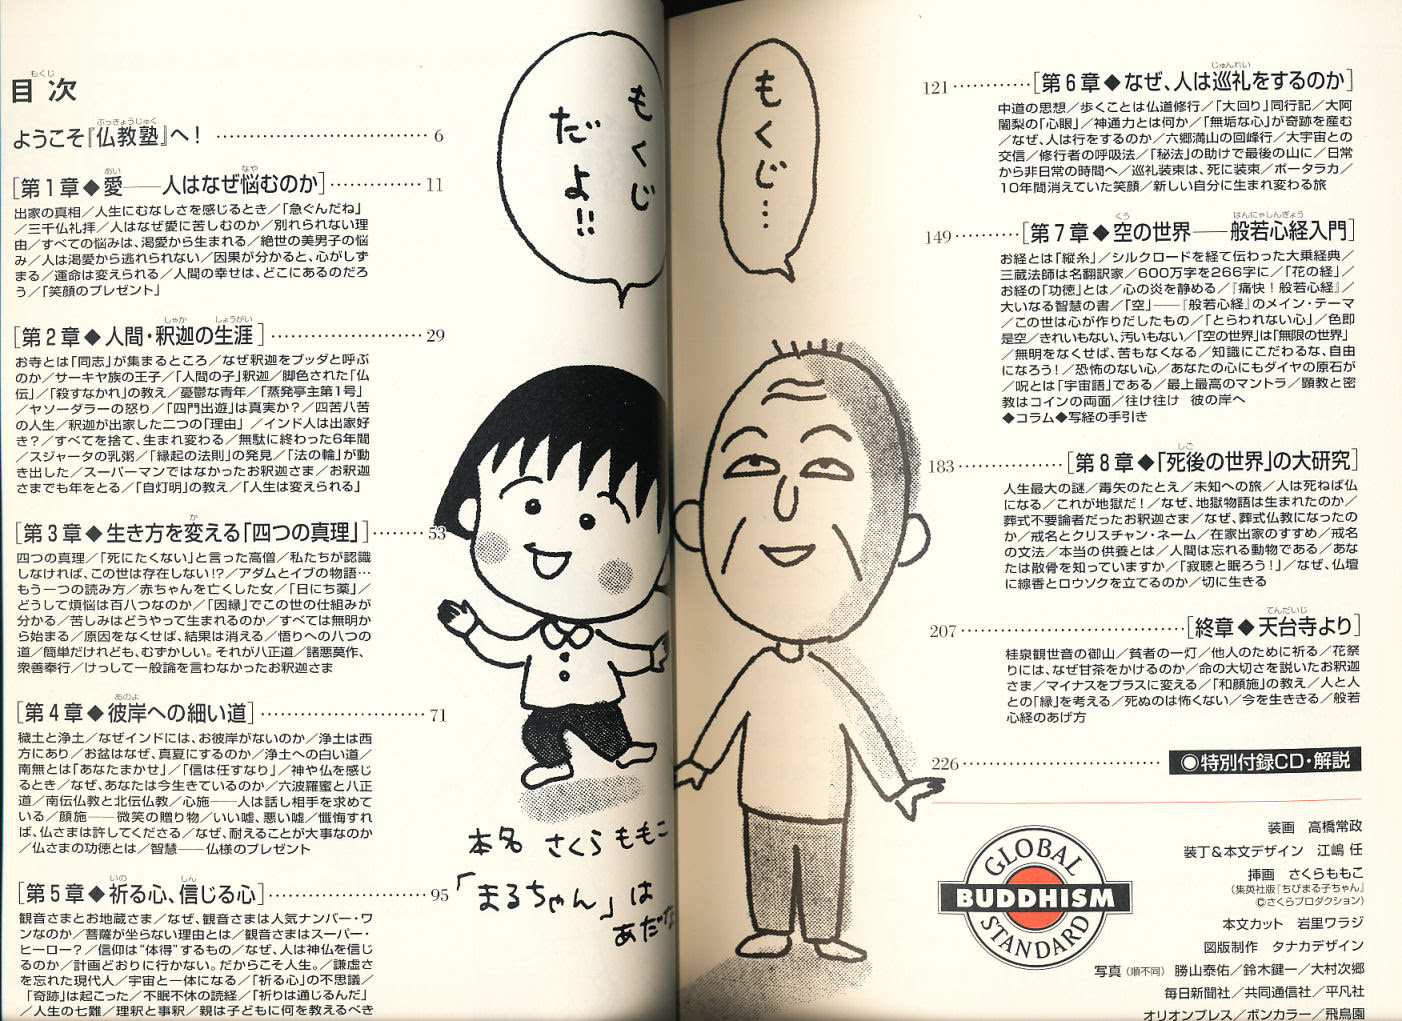 もくじ
目次
ぶっきょうじゅく
ようこそ『仏教塾』へ! 6
あい なや
[第1章◆愛——人はなぜ悩むのか] 11
出家の真相/人生にむなしさを感じるとき/「急ぐんだね」
/三千仏礼拝/人はなぜ愛に苦しむのか/別れられない理
由/すべての悩みは、渇愛から生まれる/絶世の美男子の悩
み/人は渇愛から逃れられない/因果が分かると、心がしず
まる/運命は変えられる/人間の幸せは、どこにあるのだろ
う/「笑顔のプレゼント」
しゃか しょうがい
[第2章◆人間・釈迦の生涯] 29
お寺とは「同志」が集まるところ/なぜ釈迦をブッダと呼ぶ
のか/サーキヤ族の王子/「人間の子」釈迦/脚色された「仏
伝」/「殺すなかれ」の教え/憂鬱な青年/「蒸発亭主第1号」
/ヤソーダラーの怒り/「四門出遊」は真実か?/四苦八苦
の人生/釈迦が出家した二つの「理由」/インド人は出家好
き?/すべてを捨て、生まれ変わる/無駄に終わった6年間
/スジャータの乳粥/「縁起の法則」の発見/「法の輪」が動
き出した/スーパーマンではなかったお釈迦さま/お釈迦
さまでも年をとる/「自灯明」の教え/「人生は変えられる」
か
[第3章◆生き方を変える「四つの真理」] 53
四つの真理/「死にたくない」と言った高僧/私たちが認識
しなければ、この世は存在しない!?/アダムとイブの物語…
もう一つの読み方/赤ちゃんを亡くした女/「日にち薬」/
どうして煩悩は百八つなのか/「因縁」でこの世の仕組みが
分かる/苦しみはどうやって生まれるのか/すべては無明か
ら始まる/原因をなくせば、結果は消える/悟りへの八つの
道/簡単だけれども、むずかしい。それが八正道/諸悪莫作、
衆善奉行/けっして一般論を言わなかったお釈迦さま
あのよ
[第4章◆彼岸への細い道] 71
穢土と浄土/なぜインドには、お彼岸がないのか/浄土は西
方にあり/お盆はなぜ、真夏にするのか/浄土への白い道/
南無とは「あなたまかせ」/「信は任すなり」/神や仏を感じ
るとき/なぜ、あなたは今生きているのか/六波羅蜜と八正
道/南伝仏教と北伝仏教/心施——人は話し相手を求めて
いる/顔施——微笑の贈り物/いい嘘、悪い嘘/懺悔すれ
ば、仏さまは許してくださる/なぜ、耐えることが大事なのか
/仏さまの功徳とは/智慧——仏様のプレゼント
いの しん
[第5章◆祈る心、信じる心] 95
観音さまとお地蔵さま/なぜ、観音さまは人気ナンバー・ワ
ンなのか/菩薩が坐らない理由とは/観音さまはスーパー・
ヒーロー?/信仰は“体得”するもの/なぜ、人は神仏を信じ
るのか/計画どおりに行かない。だからこそ人生。/謙虚さ
を忘れた現代人/宇宙と一体になる/「祈る心」の不思議/
「奇跡」は起こった/不眠不休の読経/「祈りは通じるんだ」
/人生の七難/理釈と事釈/親は子どもに何を教えるべき
もくじ
だよ!!
本名 さくらももこ
「まるちゃん」は
あだな
もくじ…
じゅんれい
121 [第6章◆なぜ、人は巡礼をするのか]
中道の思想/歩くことは仏道修行/「大回り」同行記/大阿
闍梨の「心眼」/神通力とは何か/「無垢な心」が奇跡を産む
/なぜ、人は行をするのか/六郷満山の回峰行/大宇宙との
交信/修行者の呼吸法/「秘法」の助けで最後の山に/日常
から非日常の時間へ/巡礼装束は、死に装束/ポータラカ/
10年間消えていた笑顔/新しい自分に生まれ変わる旅
くう はんにゃしんぎょう
149 [第7章◆空の世界——般若心経入門]
お経とは「縦糸」/シルクロードを経て伝わった大乗経典/
三蔵法師は名翻訳家/600万字を266字に/「花の経」/
お経の「功徳」とは/心の炎を静める/『痛快!般若心経』/
大いなる智慧の書/「空」——『般若心経』のメイン・テーマ
/この世は心が作りだしたもの/「とらわれない心」/色即
是空/きれいもない、汚いもない/「空の世界」は「無限の世界」
/無明をなくせば、苦もなくなる/知識にこだわるな、自由
になろう!/恐怖のない心/あなたの心にもダイヤの原石が
/呪とは「宇宙語」である/最上最高のマントラ/顕教と密
教はコインの両面/往け往け 彼の岸へ
◆コラム◆写経の手引き
しご
183 [第8章◆「死後の世界」の大研究]
人生最大の謎/毒矢のたとえ/未知への旅/人は死ねば仏
になる/これが地獄だ!/なぜ、地獄物語は生まれたのか/
葬式不要論者だったお釈迦さま/なぜ、葬式仏教になったの
か/戒名とクリスチャン・ネーム/在家出家のすすめ/戒名
の文法/本当の供養とは/人間は忘れる動物である/あな
たは散骨を知っていますか/「寂聴と眠ろう!」/なぜ、仏壇
に線香とロウソクを立てるのか/切に生きる
てんだいじ
207 [終章◆天台寺より]
桂泉観世音の御山/貧者の一灯/他人のために祈る/花祭
りには、なぜ甘茶をかけるのか/命の大切さを説いたお釈迦
さま/マイナスをプラスに変える/「和顔施」の教え/人と人
との「縁」を考える/死ぬのは怖くない/今を生ききる/般若
心経のあげ方
226 ◉特別付録CD・解説
GLOBAL
BUDDHISM
STANDARD
装画 高橋常政
装丁&本文デザイン 江嶋 任
挿画 さくらももこ
(集英社版「ちびまる子ちゃん」
©さくらプロダクション)
本文カット 岩里ワラジ
図版制作 タナカデザイン
写真(順不同) 勝山泰佑/鈴木鍵一/大村次郷
毎日新聞社/共同通信社/平凡社
オリオンプレス/ボンカラー/飛鳥園